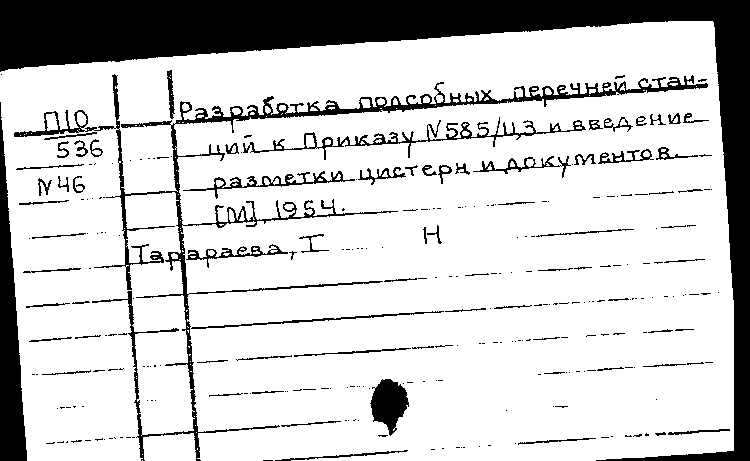 П10
536
N46
Разработка подсобных перечней стан-
ций к Приказу N585/ЦЗ и введение
разметки цистерн и документов.
[М], 1954.
Тарараева, Т Н